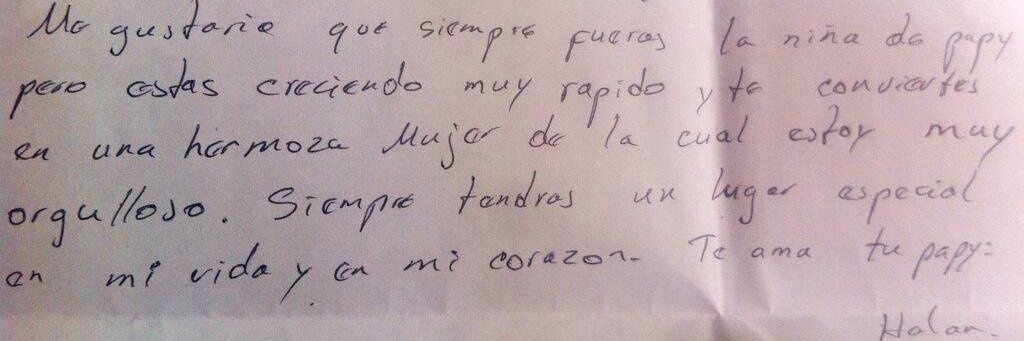 Me gustaria que siempre fueras la niña de papy
pero estas creciendo muy rapido y te conviertes
en una hermoza Mujer de la cual estoy muy
orgulloso. Siempre tendras un lugar especial
en mi vida y en mi corazon. Te ama tu papy:
Halan.